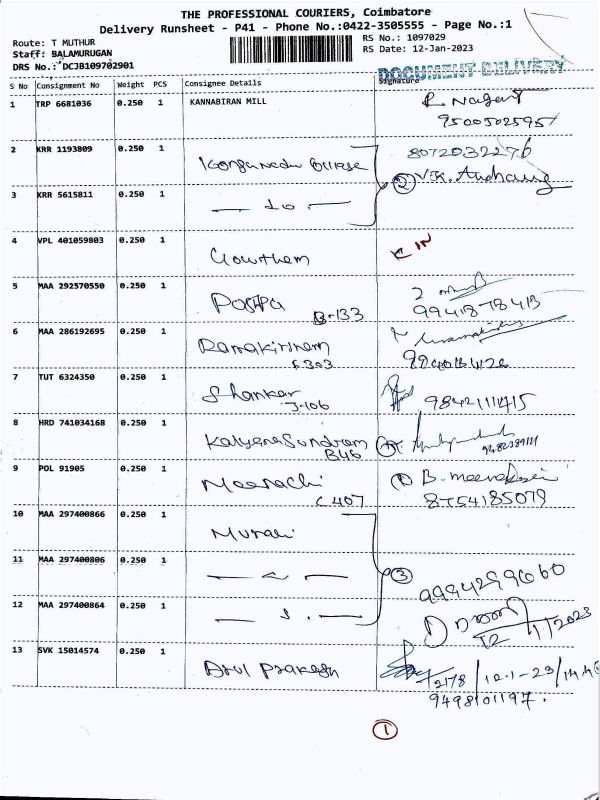 THE PROFESSIONAL COURIERS, Coimbatore
Delivery Runsheet - P41 - Phone No.:0422-3505555 - Page No.:1
Route: T MUTHUR
RS No.: 1097029
Staff: BALAMURUGAN
RS Date: 12-Jan-2023
DRS No.: DCJB109702901
DOCUMENT DELIVERY
S No Consignment No Weight PCS Consignee Details Signature
1 TRP 6681036 0.250 1 KANNABIRAN MILL
9500502595
2 KRR 1193809 0.250 1 8072032276
3 KRR 5615811 0.250 1 2 V.K.
4 VPL 401059803 0.250 1 Gowtham IN
5 MAA 292570550 0.250 1
B-133 9941878413
6 MAA 286192695 0.250 1 Ramakirshnam
F303
7 TUT 6324350 0.250 1 Shankar
J-106 9842111415
8 HRD 741034168 0.250 1 Kalyana Sundram
B46
9 POL 91905 0.250 1 Meenachi B. meenakshi
C 407 8754185079
10 MAA 297400866 0.250 1 Murali
11 MAA 297400806 0.250 1 3 9994299060
12 MAA 297400864 0.250 1
12/1/2023
13 SVK 15014574 0.250 1 Arul Prakash 2178/12-1-23/14.4
9498101197.
1